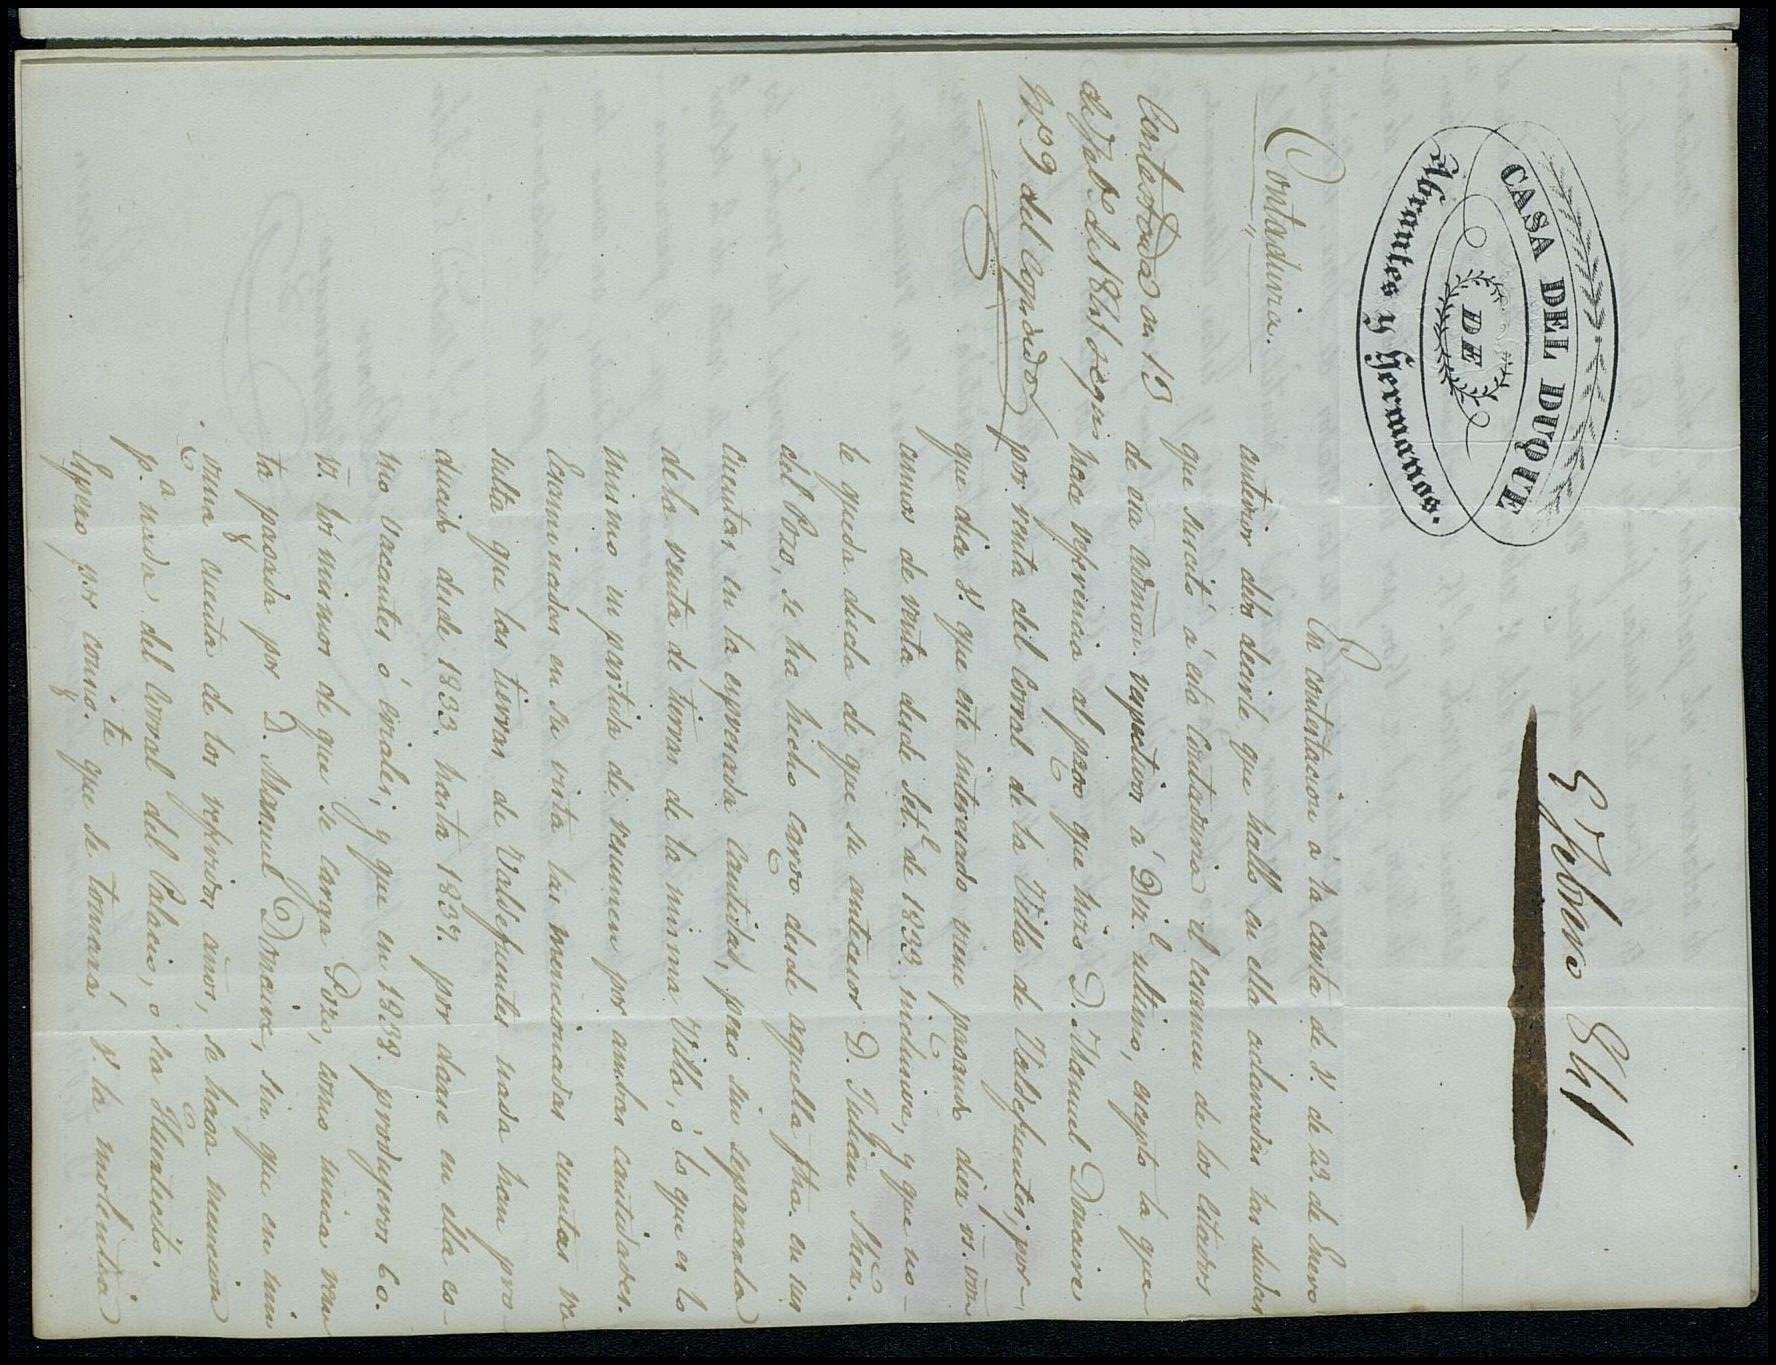 CASA DEL DUQUE
DE
Abrantes y Hermanos.
9 Febro 841
Contaduria.
Contestada en 13
de Feb.o de 1841 segun
N.o 9 del Copiador
En contestacion á la carta de V. de 22. de Enero
anterior debo decirle que hallo en ella aclaradas las dudas
que suscitó á esta Contaduria el ecsamen de las citadas
de esa admon. respectivas á Dic.e ultimo, escepto la que
hace referencia al pago que hizo D. Manuel Doncaire
por renta del Corral de la Villa de Valdefuentes; por
que dice V. que este interesado viene pagando diez rs. vn.
annos de renta desde Set.e de 1833. inclusive, y que no
le queda duda de que su antecesor D. Julian Shez.
del Pozo, se ha hecho cargo desde aquella fha. en sus
cuentas en la espresada cantidad, pero sin separarla
de la renta de tierras de la misma Villa, ó lo que es lo
mismo en partida de resumen por ambas cantidades.
Ecsaminadas en su vista las mencionadas cuentas re
sulta que las tierras de Valdefuentes nada han pro
ducido desde 1833. hasta 1837. por darse en ella co-
mo vacantes ó eriales; y que en 1838. produgeron 60.
rs. los mismos de que se carga Pozo, como unica ren
ta pagada por D. Manuel Doncaire, sin que en nin
guna cuenta de los referidos años, se haga mencion
p.a nada del Corral del Palacio, o sea Huertecito.
Espero por consig.te que se tomará V. la molestia